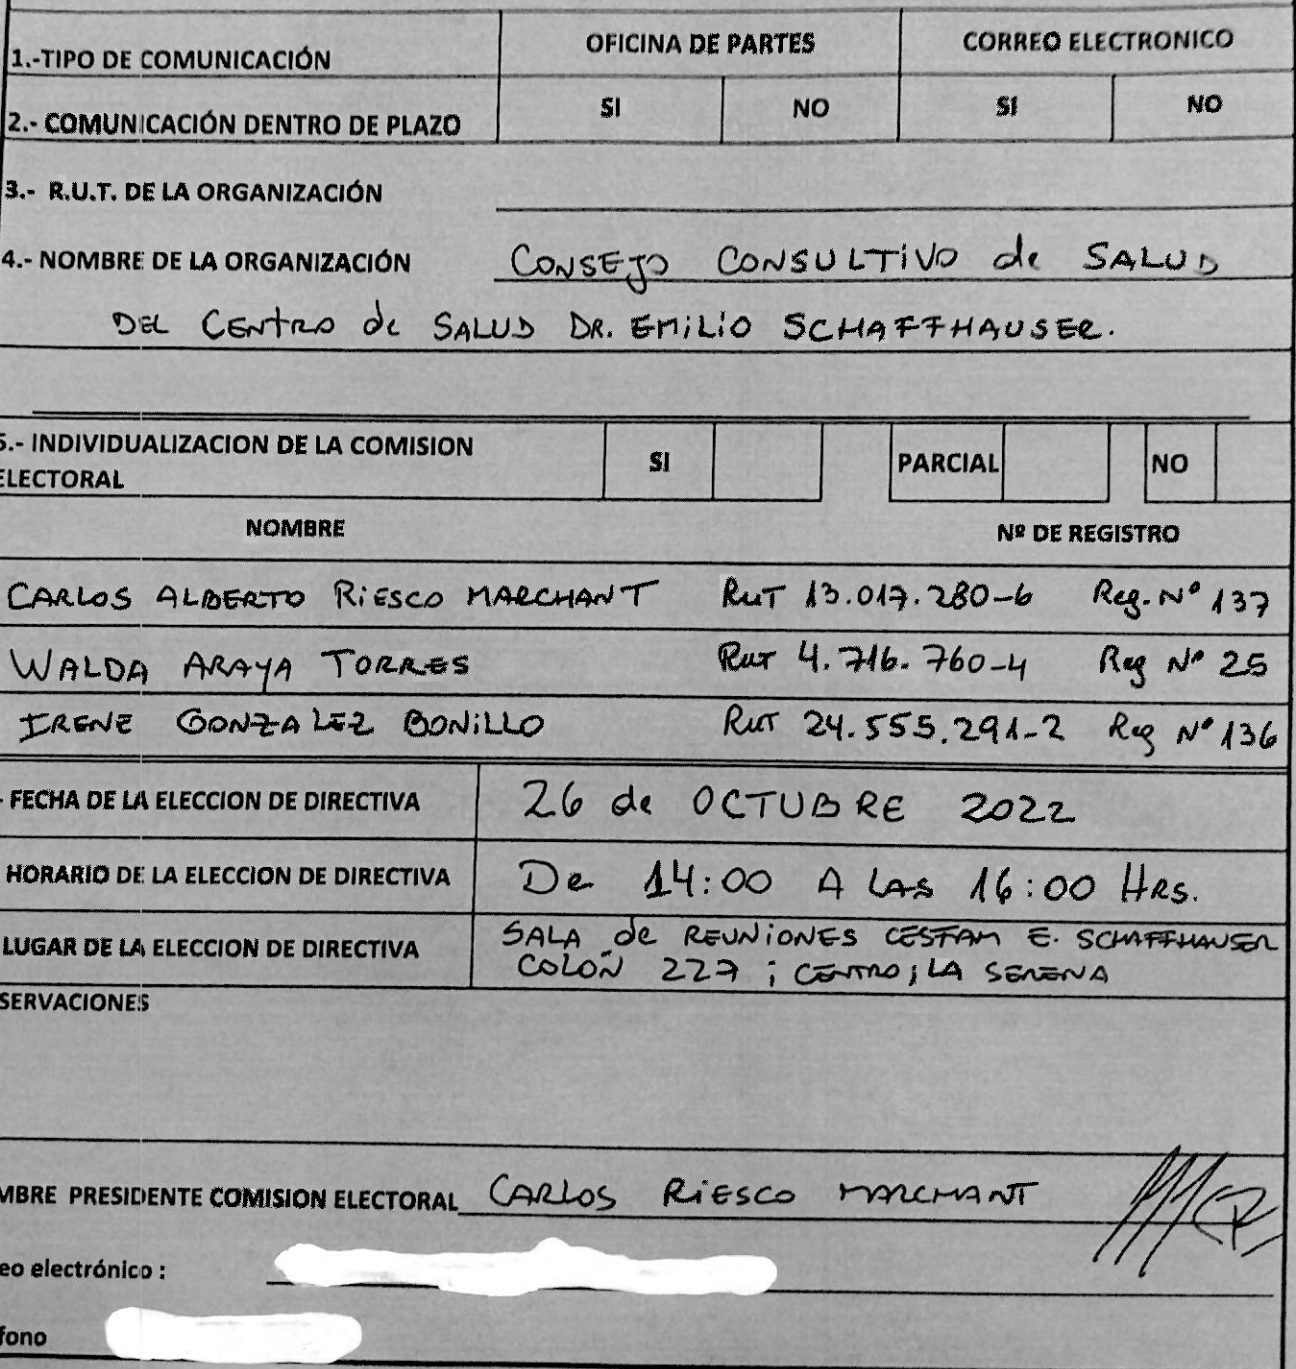 1.-TIPO DE COMUNICACIÓN OFICINA DE PARTES CORREO ELECTRONICO
2.- COMUNICACIÓN DENTRO DE PLAZO SI NO SI NO
3.- R.U.T. DE LA ORGANIZACIÓN
4.- NOMBRE DE LA ORGANIZACIÓN CONSEJO CONSULTIVO de SALUD
DEL CENTRO de SALUD DR. EMILIO SCHAFFHAUSER.
5.- INDIVIDUALIZACION DE LA COMISION
ELECTORAL SI PARCIAL NO
NOMBRE Nº DE REGISTRO
CARLOS ALBERTO RIESCO MARCHANT RUT 13.017.280-6 Reg. Nº 137
WALDA ARAYA TORRES RUT 4.716.760-4 Reg Nº 25
IRENE GONZALEZ BONILLO RUT 24.555.291-2 Reg Nº 136
- FECHA DE LA ELECCION DE DIRECTIVA 26 de OCTUBRE 2022
HORARIO DE LA ELECCION DE DIRECTIVA De 14:00 A LAS 16:00 HRS.
LUGAR DE LA ELECCION DE DIRECTIVA SALA de REUNIONES CESFAM E. SCHAFFHAUSER
COLÓN 227 ; CENTRO ; LA SERENA
SERVACIONES
MBRE PRESIDENTE COMISION ELECTORAL CARLOS RIESCO MARCHANT
eo electrónico :
fono